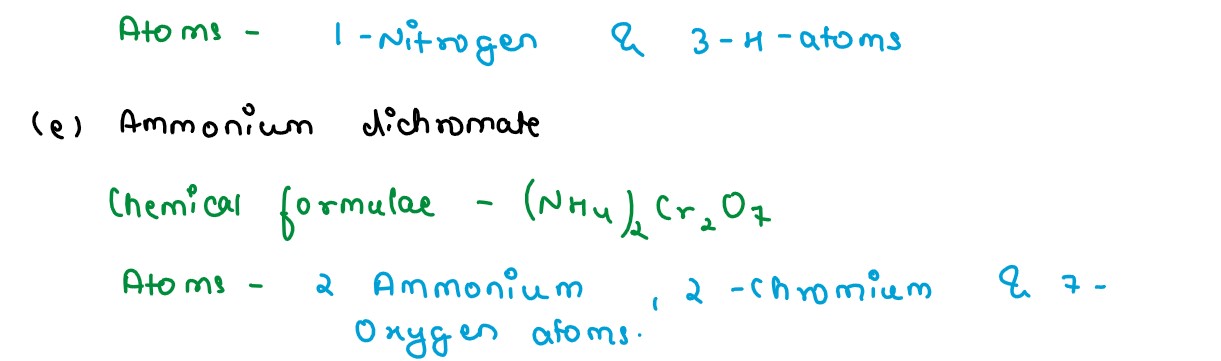 Atoms - 1-Nitrogen & 3-H-atoms
(e) Ammonium dichromate
Chemical formulae - (NH₄)₂Cr₂O₇
Atoms - 2 Ammonium, 2-Chromium & 7-
Oxygen atoms.